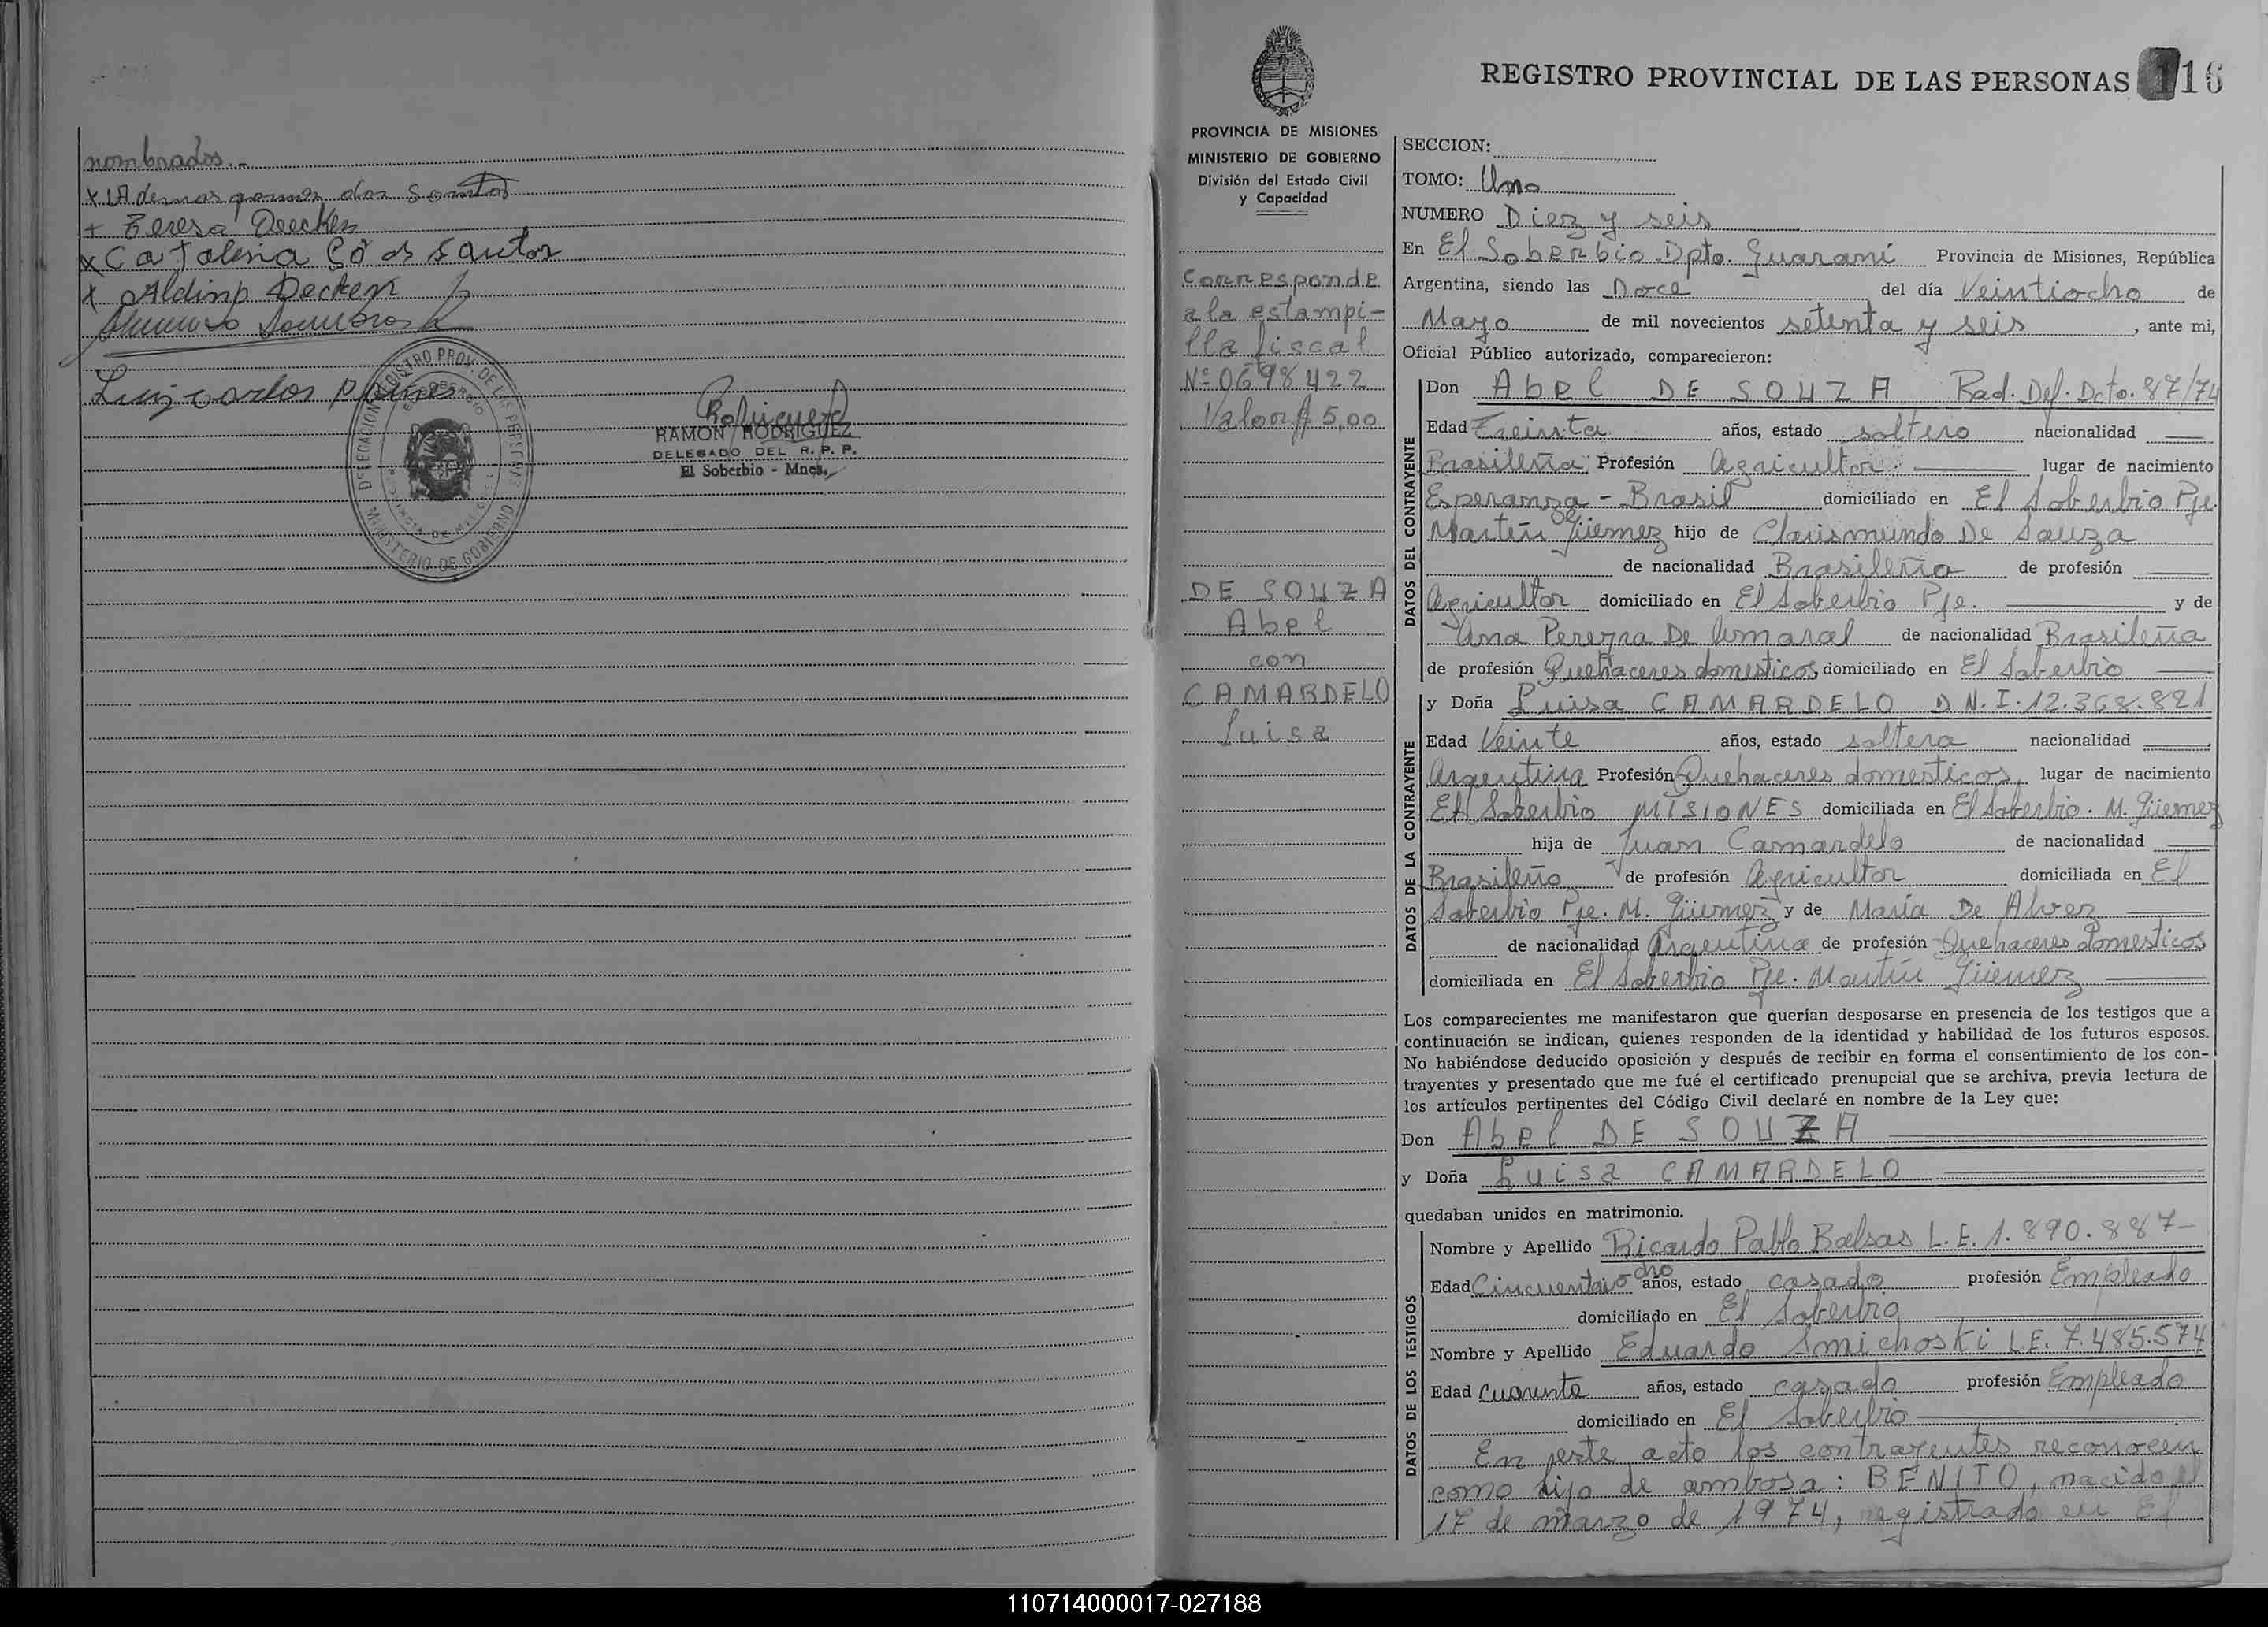 nombrados.-
x Ademar gomes dos Santos
+ Teresa Deecken
x Catalina dos Santos
x Aldino Decken
Luiz carlos
DELEGACION REGISTRO PROV. DE LAS PERSONAS
EL SOBERBIO
PROVINCIA DE MISIONES
MINISTERIO DE GOBIERNO
Rodriguez
RAMON RODRIGUEZ
DELEGADO DEL R. P. P.
El Soberbio - Mnes.
REGISTRO PROVINCIAL DE LAS PERSONAS 116
PROVINCIA DE MISIONES
MINISTERIO DE GOBIERNO
División del Estado Civil
y Capacidad
Corresponde
a la estampi-
lla fiscal
Nº 0698422
Valor $ 5,00
DE SOUZA
Abel
con
CAMARDELO
Luisa
SECCION:
TOMO: Uno
NUMERO Diez y seis
En El Soberbio Dpto. Guaraní Provincia de Misiones, República
Argentina, siendo las Doce del día Veintiocho de
Mayo de mil novecientos setenta y seis, ante mi,
Oficial Público autorizado, comparecieron:
DATOS DEL CONTRAYENTE
Don Abel DE SOUZA Rad. Def. Dcto. 87/74
Edad Treinta años, estado soltero nacionalidad
Brasileña Profesión Agricultor lugar de nacimiento
Esperanza - Brasil domiciliado en El Soberbio Pje.
Martín Güemez hijo de Clarismundo De Souza
de nacionalidad Brasileña de profesión
Agricultor domiciliado en El Soberbio Pje. y de
Ana Pereyra De Amaral de nacionalidad Brasileña
de profesión Quehaceres domesticos domiciliado en El Soberbio
DATOS DE LA CONTRAYENTE
y Doña Luisa CAMARDELO D.N.I. 12.368.821
Edad Veinte años, estado soltera nacionalidad
Argentina Profesión Quehaceres domesticos lugar de nacimiento
El Soberbio MISIONES domiciliada en El Soberbio. M. Güemez
hija de Juan Camardelo de nacionalidad
Brasileño de profesión Agricultor domiciliada en El
Soberbio Pje. M. Güemez y de María De Alvez
de nacionalidad Argentina de profesión Quehaceres Domesticos
domiciliada en El Soberbio Pje. Martín Güemez
Los comparecientes me manifestaron que querían desposarse en presencia de los testigos que a
continuación se indican, quienes responden de la identidad y habilidad de los futuros esposos.
No habiéndose deducido oposición y después de recibir en forma el consentimiento de los con-
trayentes y presentado que me fué el certificado prenupcial que se archiva, previa lectura de
los artículos pertinentes del Código Civil declaré en nombre de la Ley que:
Don Abel DE SOUZA
y Doña Luisa CAMARDELO
quedaban unidos en matrimonio.
DATOS DE LOS TESTIGOS
Nombre y Apellido Ricardo Pablo Balsas L.E. 1.890.887-
Edad Cincuentaiocho años, estado casado profesión Empleado
domiciliado en El Soberbio
Nombre y Apellido Eduardo Smichoski L.E. 7.485.574
Edad Cuarenta años, estado casado profesión Empleado
domiciliado en El Soberbio
En este acto los contrayentes reconocen
como hijo de ambosa: BENITO, nacido el
17 de marzo de 1974, registrado en El
110714000017-027188